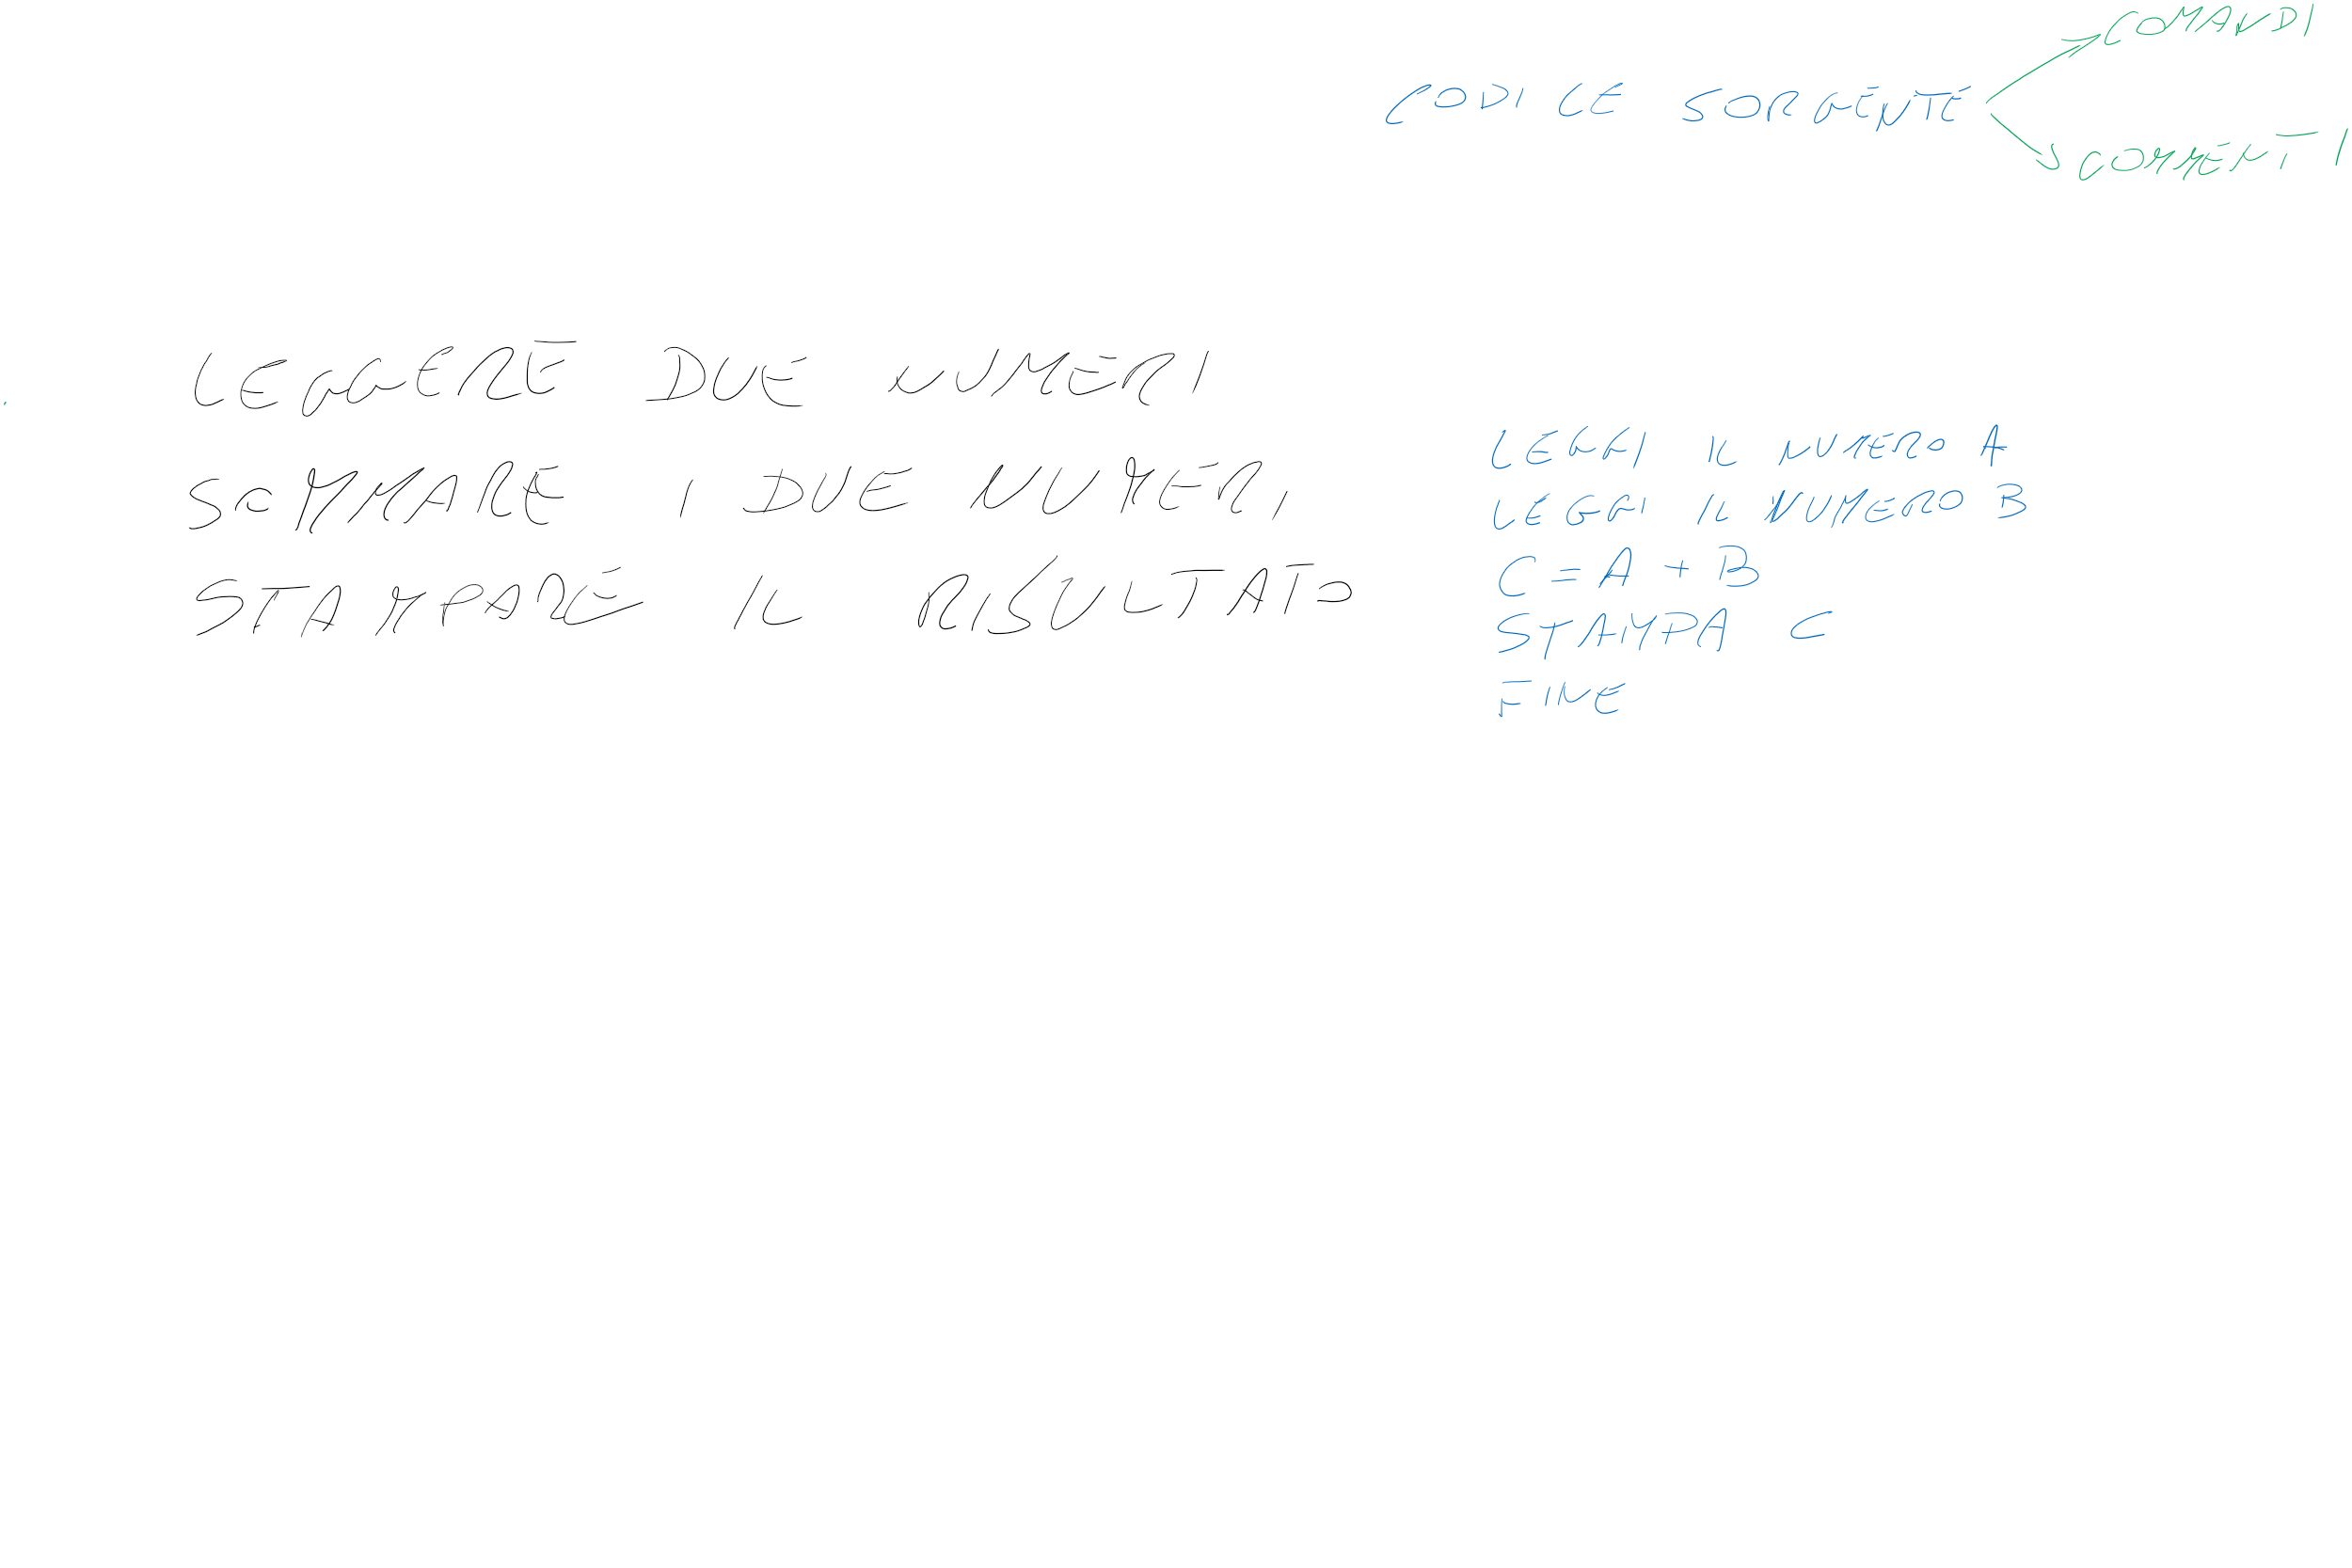 COMANDI
CODICE SORGENTE
COMMENTI
LEGGERE DUE NUMERI
SOMMARE I DUE NUMERI
STAMPARE IL RISULTATO
LEGGI IL NUMERO A
LEGGI IL NUMERO B
C = A + B
STAMPA C
FINE